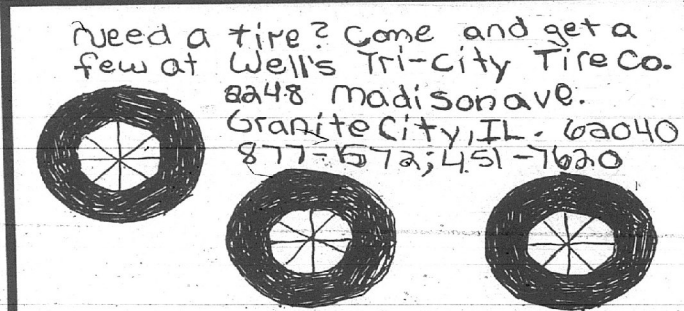 Need a tire? Come and get a
few at Well's Tri-City Tire Co.
2248 Madison ave.
Granite City, IL. 62040
877-1572; 451-7620